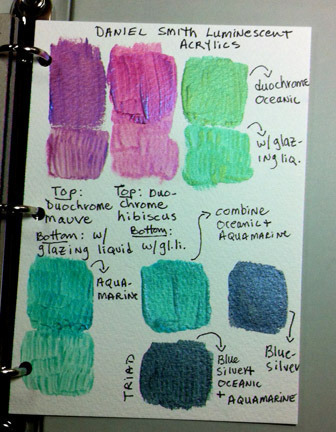 DANIEL SMITH LUMINESCENT
ACRYLICS
duochrome
OCEANIC
w/glaz-
ing liq.
Top:
Duochrome
mauve
Bottom: w/
glazing liquid
Top: Duo-
chrome
hibiscus
Bottom:
w/gl.li.
combine
OCEANIC +
AQUAMARINE
AQUA-
MARINE
Blue-
silver
TRIAD
Blue
silver +
OCEANIC
+ AQUAMARINE